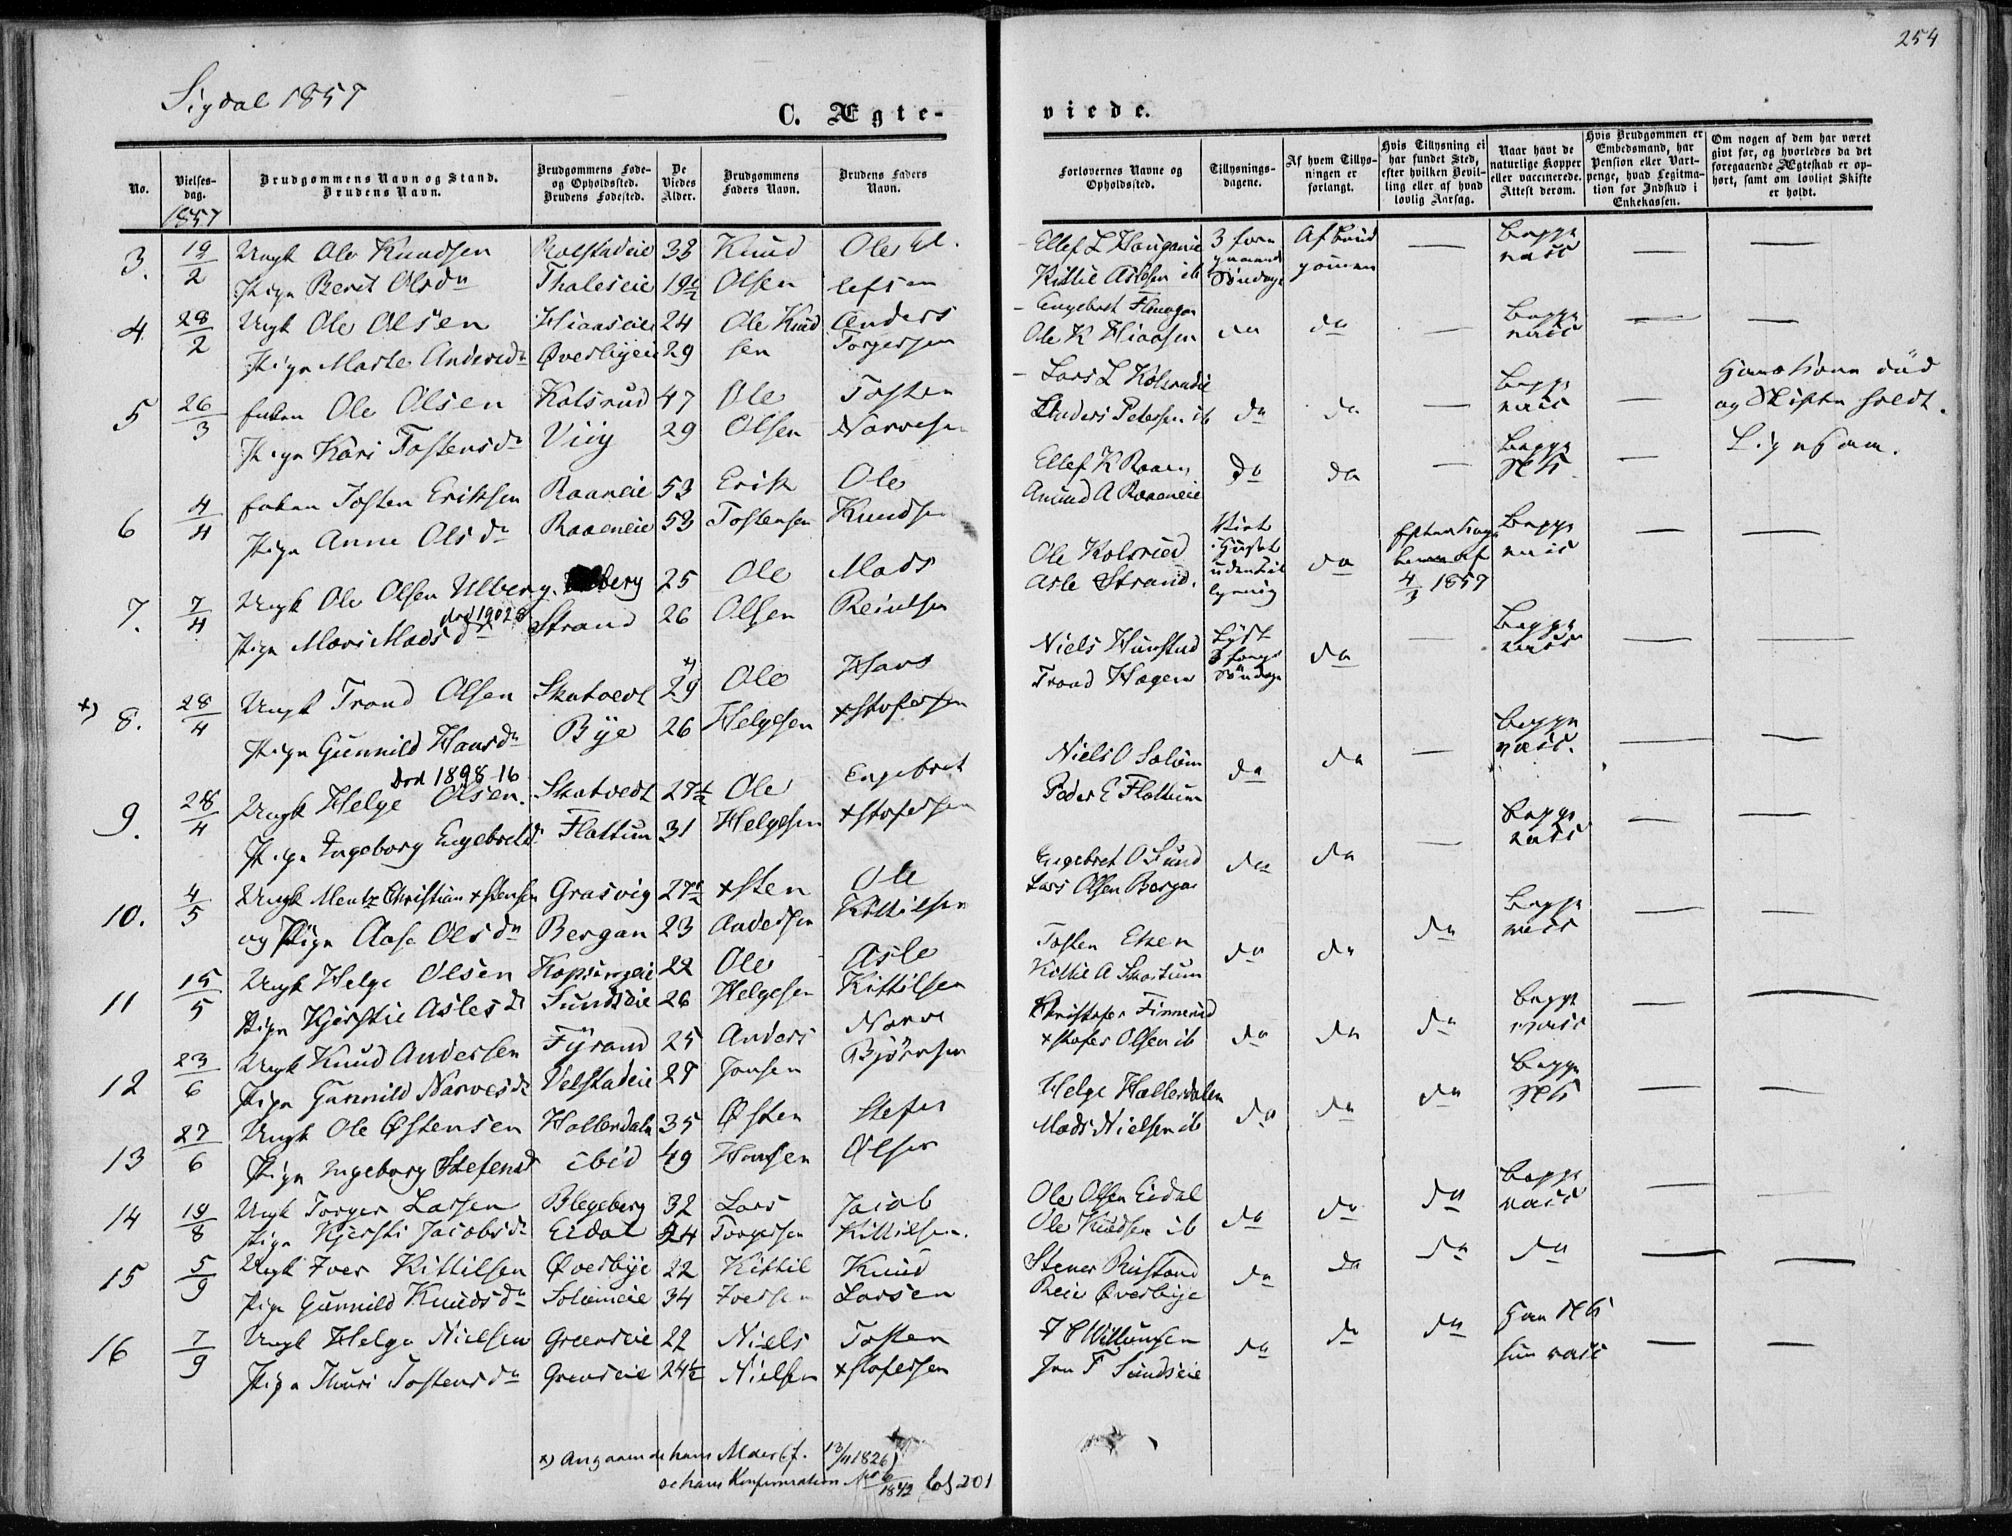 254
Sigdal 1857
C. Ægteviede.
No.
Vielses-dag. 1857
Brudgommens Navn og Stand. Brudens Navn.
Brudgommens Føde- og Opholdssted. Brudens Fødested.
De Viedes Alder.
Brudgommens Faders Navn.
Brudens Faders Navn.
Forlovernes Navne og Opholdssted.
Tillysnings-dagene.
Af hvem Tillysningen er forlangt.
Hvis Tillysning ei har fundet Sted, efter hvilken Bevilling eller af hvad lovlig Aarsag.
Naar havt de naturlige Kopper eller vaccinerede. Attest derom.
Hvis Brudgommen er Embedsmand, har Pension eller Vartpenge, hvad Legitimation for Indskud i Enkekassen.
Om nogen af dem har været givt før, og hvorledes da det foregaaende Ægteskab er ophørt, samt om lovligt Skifte er holdt.
3. 19/2 Ungk Ole Knudsen Rolstadeie 33 Knud Ole El- Ellef L Haugeneie 3 foregaaende Af Brud Begge
Pige Berit Olsdr Tholeseie 19½ Olsen lefsen Kittil Aslesen ib Søndage gommen vacc
4. 28/2 Ungk Ole Olsen Hiaaseie 24 Ole Knud Anders Engebret do do Begge
Pige Marte Andersdr Øverbyeie 29 sen Torgersen Ole K Hiaasen vacc
5 26/3 Enkem Ole Olsen Kolsrud 47 Ole Tosten Lars L Kolsrudeie do do Begge Hans Kone død
Pige Kari Tostensdr Viig 29 Olsen Narvesen Anders Petersen ib vacc og Skifte holdt.
6 4/4 Enkem Tosten Eriksen Raaneie 53 Erik Ole Ellef K Raaen do do Begge Ligesaa.
Pige Anne Olsdr Raaeneie 53 Tostensen Knudsen Amund A Raaeneie
7. 7/4 Ungk Ole Olsen Ulberg. berg 25 Ole Mads Ole Kolsrud Viet i Huset do Begge
Pige Mari Madsdr død 1902 8 Strand 26 Olsen Reiersen Asle Strand. uden Tillysning 4/3 1857 vacc
x) 8. 28/4 Ungk Trond Olsen Skatvedt x) 29 Ole Hans Niels Hunstad Lyst 3 forrige do Begge
Pige Gunnild Hansdr Bye 26 Helgesen xstofersen Trond Hagen Søndage vacc
9. 28/4 Ungk Helge Olsen. Død 1898-16 Skatvedt 27½ Ole Engebret Niels O Solum do do Begge
Pige Ingeborg Engebretsdr Flattum 31 Helgesen xstofersen Peder E Flattum vacc.
10. 4/5 Ungk Mentz Christian xstensen Grasvig 27½ xsten Ole Engebret O Lund do do Begge
og Pige Aase Olsdr Bergan 23 Andersen Kittilsen Lars Olsen Bergan vacc
11 15/5 Ungk Helge Olsen Kopsengeie 22 Ole Asle Tosten do do do Begge
Pige Kjerstie Aslesdr Sundseie 26 Helgesen Kittilsen Kittil A Skartum vacc
12 23/6 Ungk Knud Andersen Fyrand 25 Anders Narve Christofer Finnerud do do do Begge
Pige Gunnild Narvesdr Velstadeie 27 Jonsen Bjørnsen xstofer Olsen ib vacc
13 27/6 Ungk Ole Østensen Hollerdalen 35 Østen Stefen Helge Hollerdalen do do do Begge
Pige Ingeborg Stefensdr ibid 49 Hansen Olsen Mads Nielsen ib
14 19/8 Ungk Torger Larsen Blegeberg 32 Lars Jacob Ole Olsen Eidal do do do Begge
Pige Kjersti Jacobsdr Eidal 24 Torgersen Kittilsen. Ole Knudsen ib vacc
15 5/9 Ungk Iver Kittilsen Øverbye 22 Kittil Knud Stener Rustand do do do do
Pige Gunnild Knudsdr Solumeie 34 Iversen Larsen Reier Øverbye
16 7/9 Ungk Helge Nielsen Greenseie 22 Niels Tosten do do do han
Pige Thuri Tostensdr Grenseie 24½ Nielsen xstofersen Jon T Sundseie hun vacc
x) Angaaende hans Alder cf. 13/11 1826)
se hans Konfirmation No 6/1842 fol 201